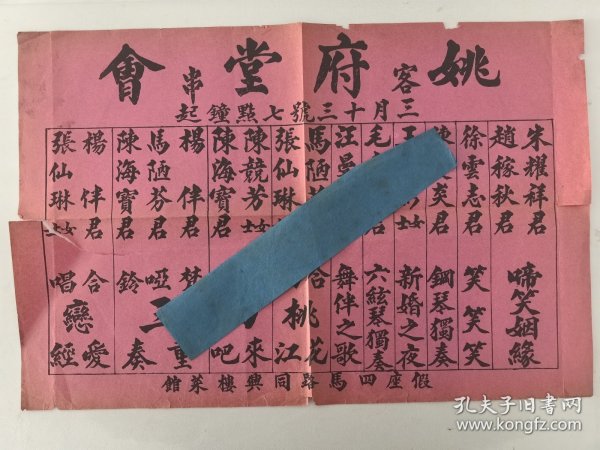 姚府堂會
客串
三月十三號七點鐘起
朱耀祥君
趙稼秋君
啼笑姻緣
徐雲志君
笑笑笑
奕君
鋼琴獨奏
王
女士
新婚之夜
毛
六絃琴獨奏
汪曼
舞伴之歌
馬陋
張仙琳
合
桃花江
陳競芳女士
陳海寶
來吧
楊伴君
馬陋芬君
陳海寶君
梵
啞
鈴
三重奏
楊伴君
張仙琳女士
合唱
戀愛經
假座四馬路同興樓菜館
孔夫子旧书网
www.kongfz.com